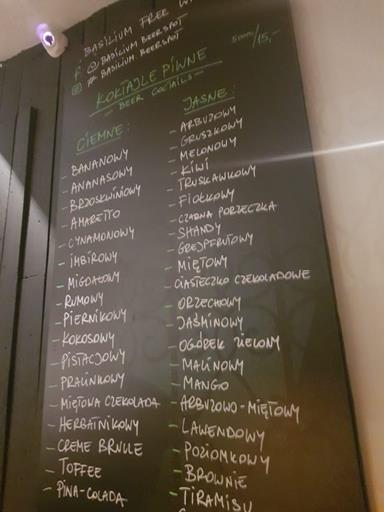 BASILIUM FREE
@BASILIUM BEERSPOT
# BASILIUM.BEERSPOT
KOKTAJLE PIWNE
- BEER COCTAILS -
500ml/15,-
CIEMNE:
- BANANOWY
- ANANASOWY
- BRZOSKWINIOWY
- AMARETTO
- CYNAMONOWY
- IMBIROWY
- MIGDAŁOWY
- RUMOWY
- PIERNIKOWY
- KOKOSOWY
- PISTACJOWY
- PRALINKOWY
- MIĘTOWA CZEKOLADA
- HERBATNIKOWY
- CREME BRULE
- TOFFEE
- PINA-COLADA
JASNE:
- ARBUZOWY
- GRUSZKOWY
- MELONOWY
- KIWI
- TRUSKAWKOWY
- FIOŁKOWY
- CZARNA PORZECZKA
- SHANDY
- GREJPFRUTOWY
- MIĘTOWY
- CIASTECZKO CZEKOLADOWE
- ORZECHOWY
- JAŚMINOWY
- OGÓREK ZIELONY
- MALINOWY
- MANGO
- ARBUZOWO-MIĘTOWY
- LAWENDOWY
- POZIOMKOWY
- BROWNIE
- TIRAMISU